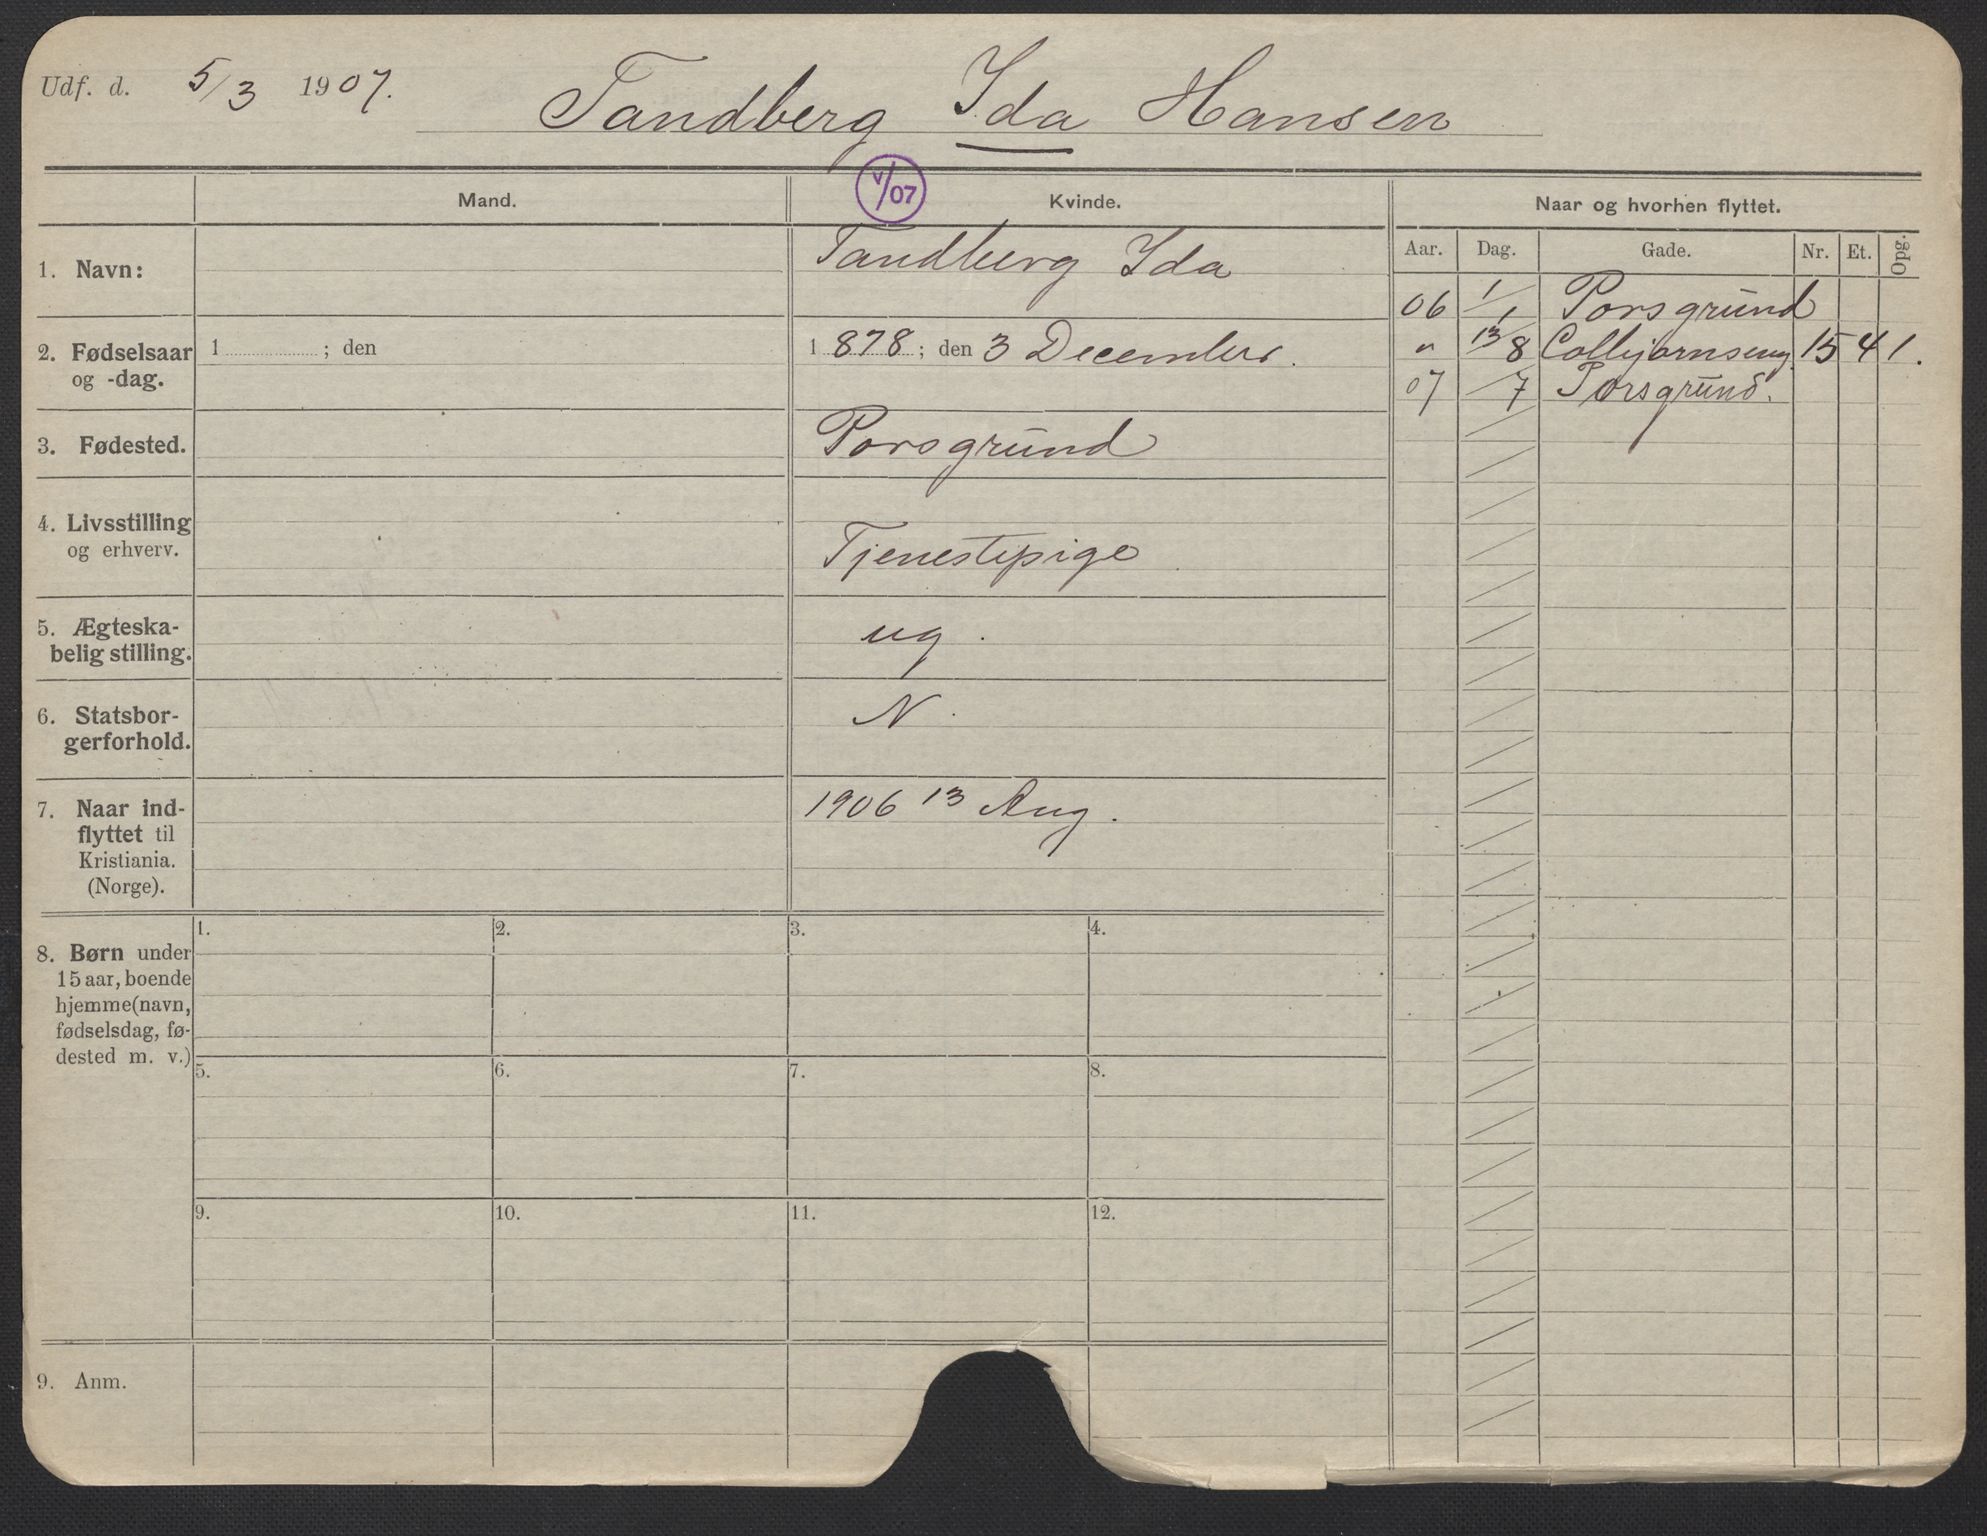 Udf. d. 5/3 1907. Tandberg Ida Hansen
Mand.
V/07
Kvinde.
Naar og hvorhen flyttet.
Aar. Dag. Gade. Nr. Et. Opg.
1. Navn: Tandberg Ida
06 1/1 Porsgrund
2. Fødselsaar 1 ; den 1878 ; den 3 December.
og -dag.
" 13/8 Colbjørnseng. 15 4 1.
07 /7 Porsgrund.
3. Fødested. Porsgrund
4. Livsstilling
og erhverv. Tjenestepige
5. Ægteska-
belig stilling. ug.
6. Statsbor-
gerforhold. N.
7. Naar ind-
flyttet til
Kristiania.
(Norge).
1906 13 Aug.
8. Børn under
15 aar, boende
hjemme (navn,
fødselsdag, fø-
dested m. v.)
1. 2. 3. 4.
5. 6. 7. 8.
9. 10. 11. 12.
9. Anm.